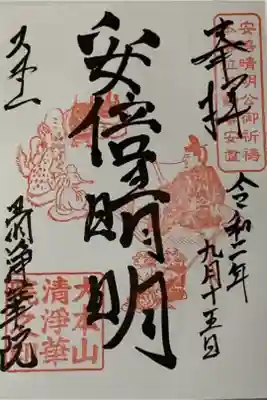 安倍晴明公御祈祷
奉拝
令和二年
九月十五日
安倍晴明
大本山
清浄華院
大本山
清淨華